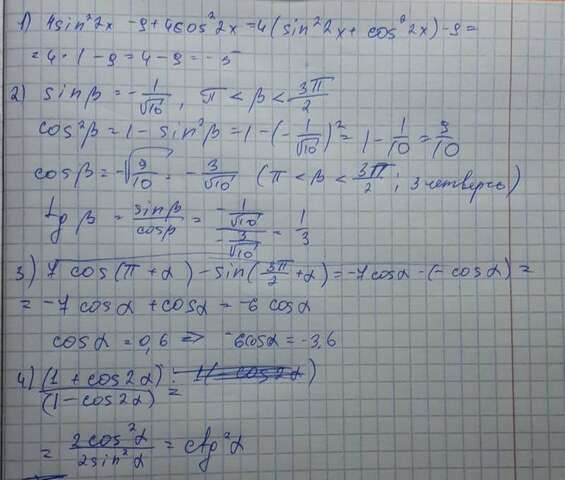 1) 4sin²2x - 9 + 4cos²2x = 4(sin²2x + cos²2x) - 9 =
= 4 · 1 - 9 = 4 - 9 = -5
2) sin β = -1/√10, π < β < 3π/2
cos²β = 1 - sin²β = 1 - (-1/√10)² = 1 - 1/10 = 9/10
cos β = -√(9/10) = -3/√10 (π < β < 3π/2; 3 четверть)
tg β = sin β/cos β = (-1/√10)/(-3/√10) = 1/3
3) 7 cos(π + α) - sin(3π/2 + α) = -7cos α - (-cos α) =
= -7 cos α + cos α = -6 cos α
cos α = 0,6 => -6cos α = -3,6
4) (1 + cos 2α)/(1 - cos 2α) =
= 2cos²α/2sin²α = ctg²α